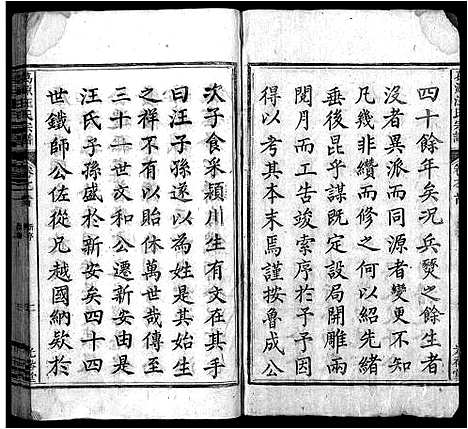 四十餘年矣況兵燹之餘生者
沒者異派而同源者變更不一
凡幾非纘而修之何以紹先緒
垂後昆乎謀既定設局開雕兩
閱月而工告竣索序於予予因
得以考其本末焉謹按魯成公
次子食采潁川生有文在其手
曰汪子孫遂以為姓是其始生
之祥不有以貽休萬世哉傳至
三十一世文和公遷新安由是
汪氏子孫盛於新安矣四十四
世鐵師公佐從兄越國納欵於
汪氏宗譜
卷之首